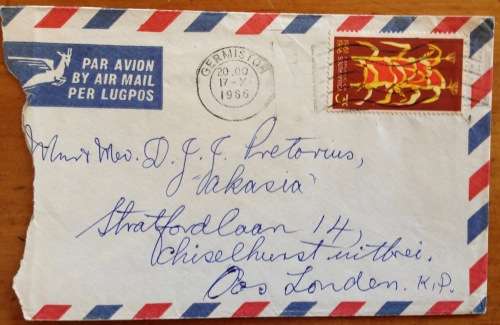 PAR AVION
BY AIR MAIL
PER LUGPOS
GERMISTON
20.00
17-X
1966
Mnr & Mev. D. J. J. Pretorius,
"Akasia"
Stratfordlaan 14,
Chiselhurst uitbrei.
Oos Londen. K.P.